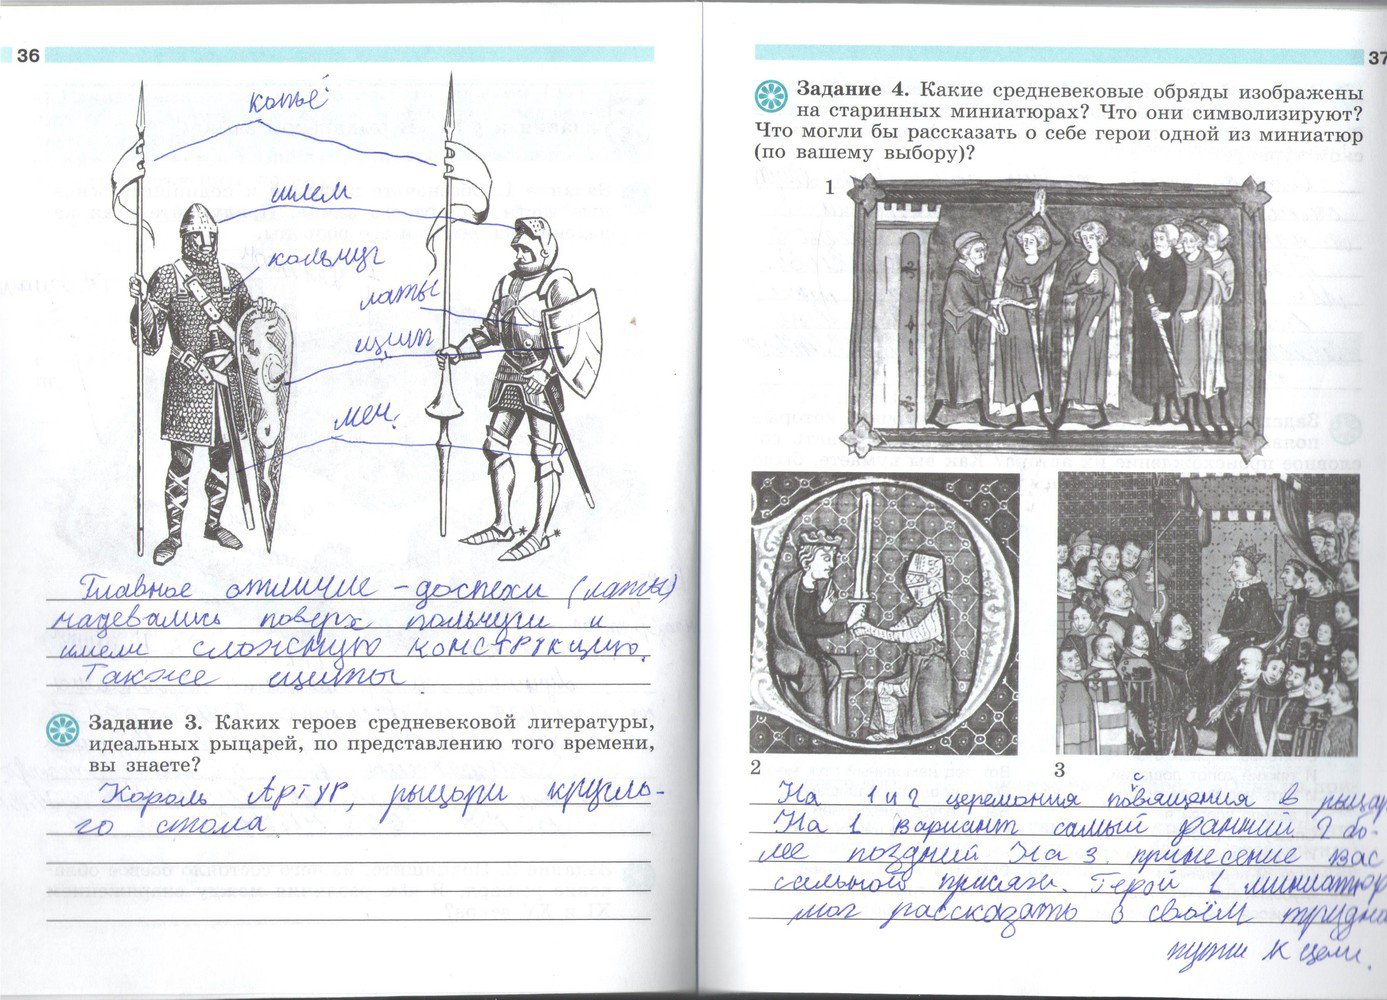 36
копьё
шлем
кольчуг
латы
щит
меч.
Главное отличие – доспехи (латы)
надевались поверх кольчуги и
имели сложную конструкцию.
Также щиты.
Задание 3. Каких героев средневековой литературы,
идеальных рыцарей, по представлению того времени,
вы знаете?
Король Артур, рыцари кругло-
го стола
37
Задание 4. Какие средневековые обряды изображены
на старинных миниатюрах? Что они символизируют?
Что могли бы рассказать о себе герои одной из миниатюр
(по вашему выбору)?
1
2
3
На 1 и 2 церемония посвящения в рыцар
На 1 вариант самый ранний 2 бо-
лее поздний На 3. принесение вас
сальной присяги. Герой 1 миниатюр
мог рассказать о своём трудно
пути к цели.